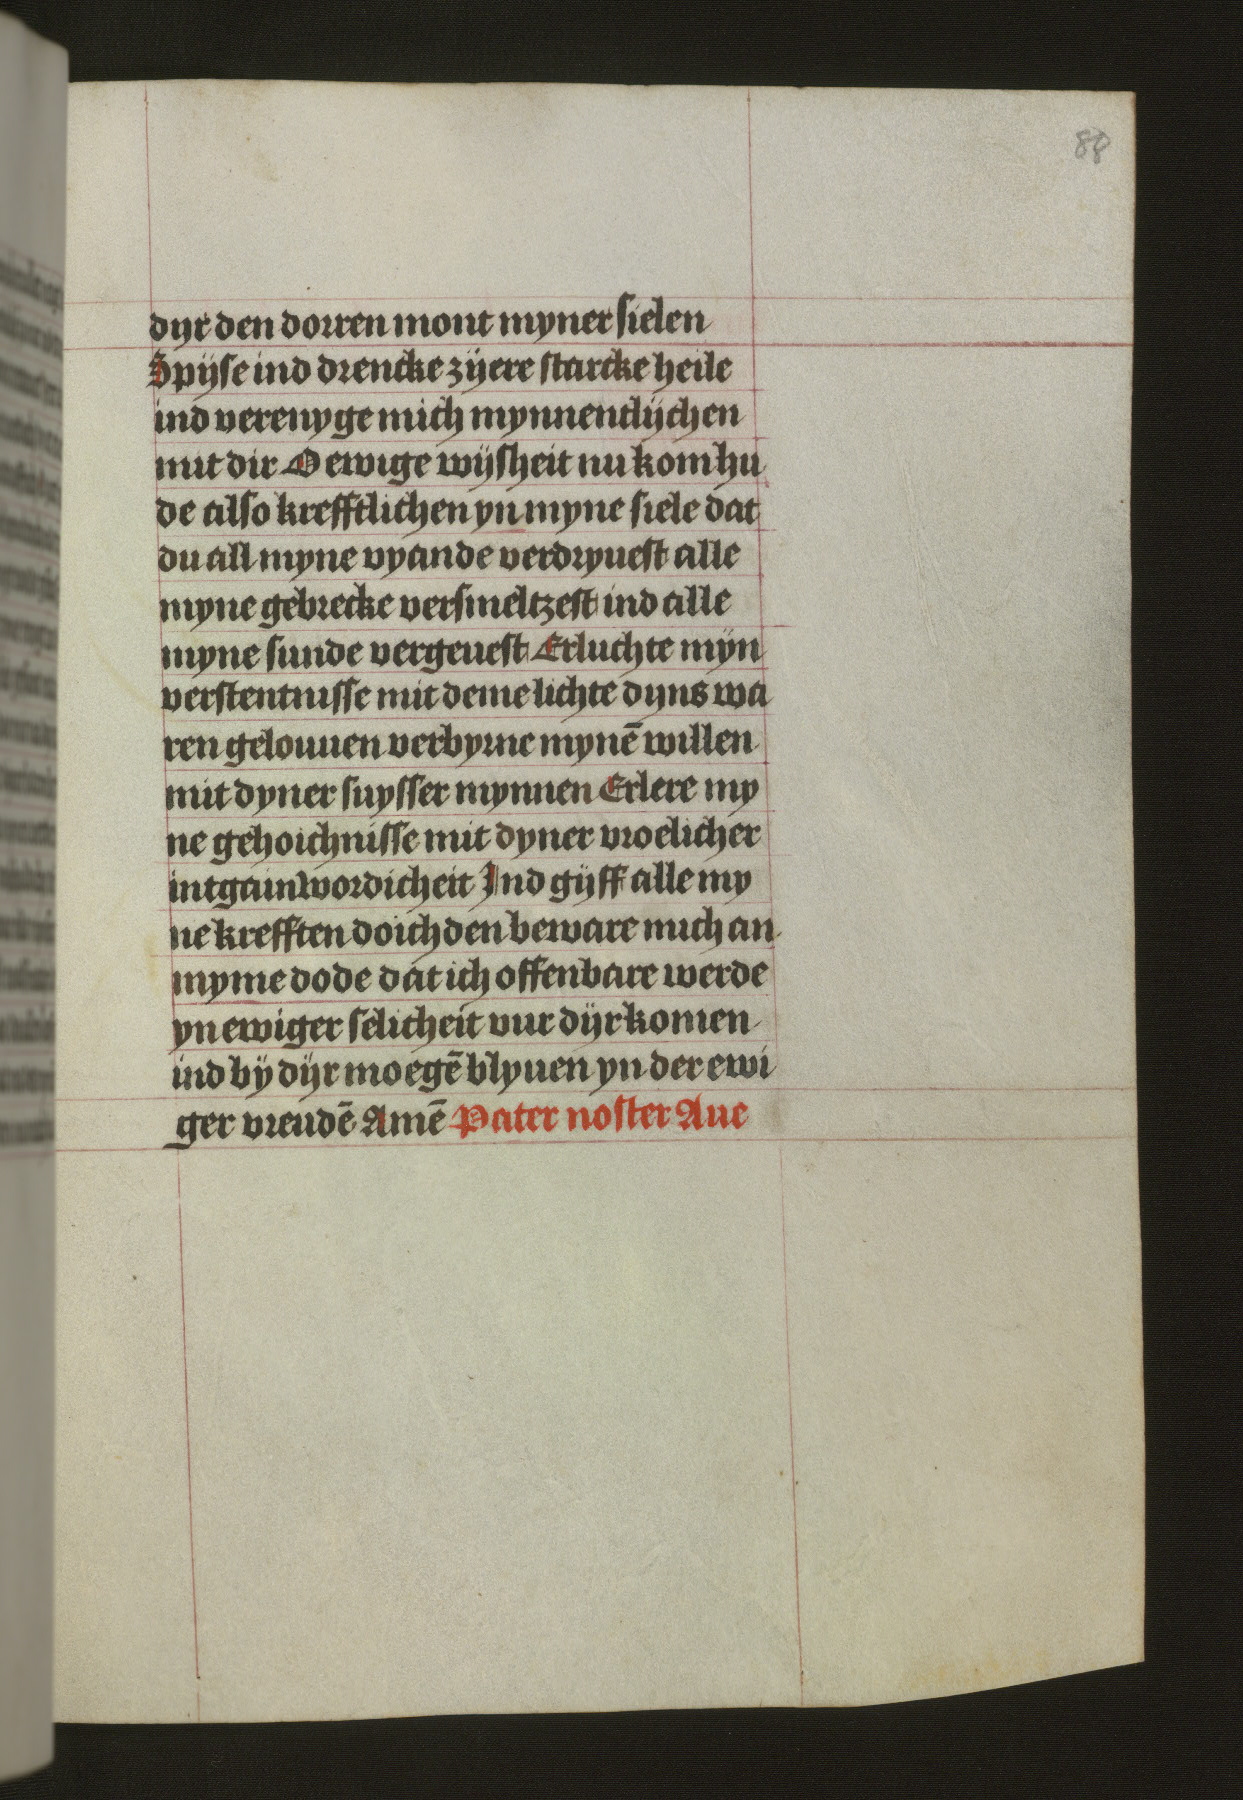 88
dyr den dorren mont myner sielen
Spijse ind drencke zÿere starcke heile
ind verenyge mich mynnentlÿchen
mit dir O ewige wÿsheit nu kom hu
de also krefftlichen yn myne siele dat
du all myne vyande verdryuest alle
myne gebrecke versmeltzest ind alle
myne sunde vergeuest Erluchte mÿn
verstentnisse mit deme lichte dyns wa
ren gelouuen verbyrne mynē willen
mit dyner suysser mynnen Erlere my
ne gehoichnisse mit dyner vroelicher
intgainwordicheit Ind gÿff alle my
ne krefften doichden beware mich an
myme dode dat ich offenbare werde
yn ewiger selicheit vur dÿr komen
ind bÿ dÿr moegē blyuen yn der ewi
ger vreudē Amē Pater noster Aue